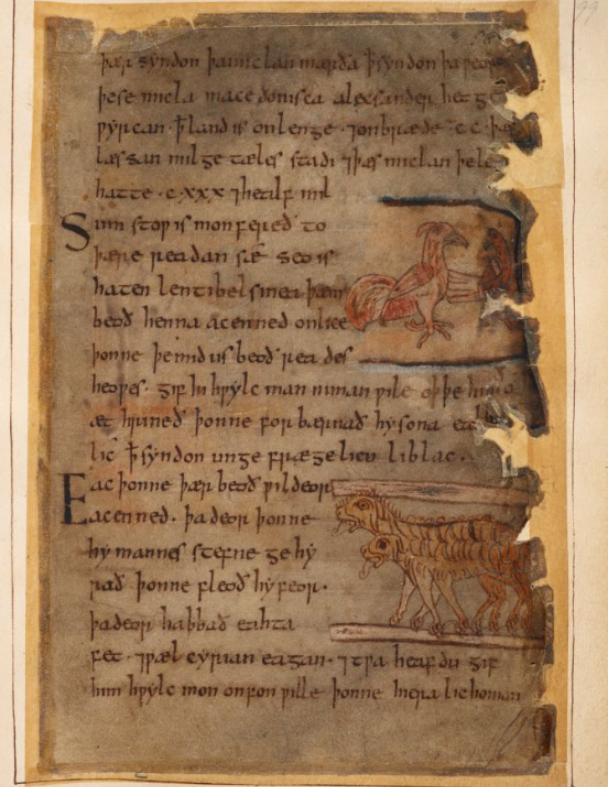 þær syndon þa miclan mærða ꝥ syndon þa ᵹeƿeo
þe se micla macedonisca alecsander het ge
ƿyrcan · ꝥ land is on lenge · ⁊ on bræde · cc · þæs
læssan milgetæles stadi ⁊ þæs miclan þe le
hatte · cxxx ⁊ healf mil
Sum stoƿ is mon fereð to
þære readan sæ seo is
haten lentibelsinea þær
beoð henna acenned onlice
þonne þe mid us beoð reades
heoƿes · gif hi hƿylc man niman ƿile oþþe hira
æthrineð þonne forbærnað hy sona eal
lic ꝥ syndon ungefrægelicu liblac ·
Eac þonne þær beoð ƿildeor
acenned · þa deor þonne
hy mannes stefne gehy
rað þonne fleoð hy feor ·
þa deor habbað eahta
fet · ⁊ ƿælcyrian eagan · ⁊ tƿa heafdu gif
him hƿylc mon onfon ƿille þonne hiera lichoman